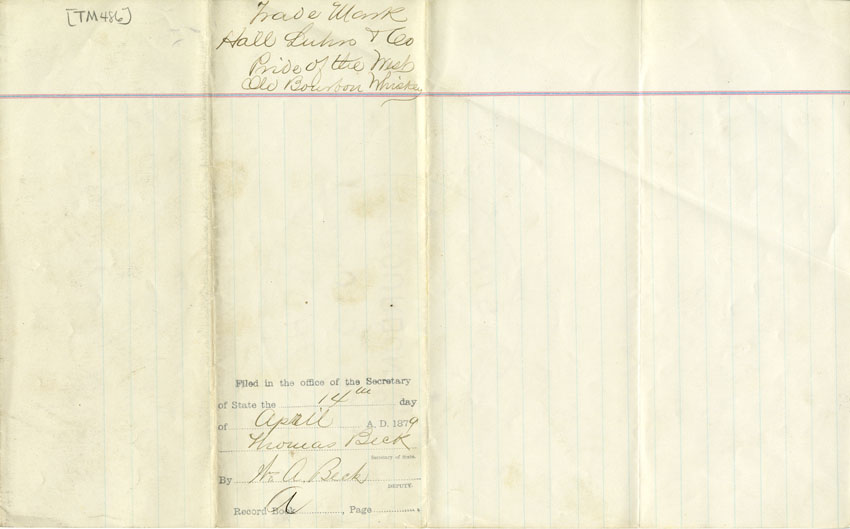 [TM486]
Trade Mark
Hall Luhrs & Co
Pride of the West
Old Bourbon Whiskey
Filed in the office of the Secretary
of State the 14th day
of April A. D. 1879
Thomas Beck
Secretary of State.
By W. A. Beck
DEPUTY.
Record Book A, Page